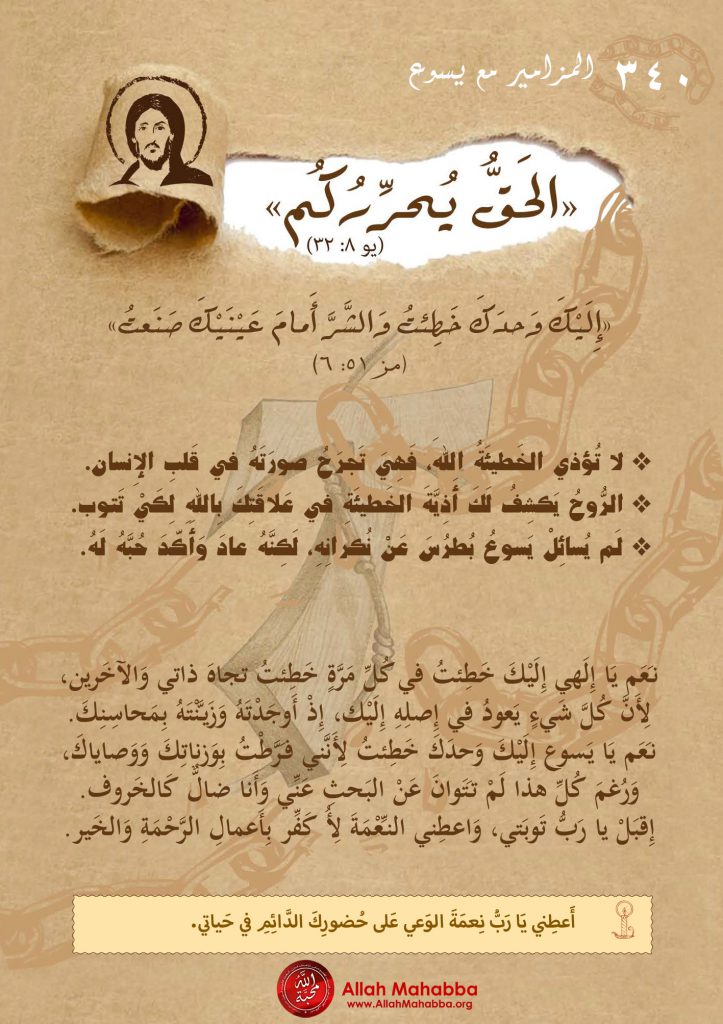 ٣٤٠ المزامير مع يسوع
«الحَقُّ يُحرِّرُكُم»
(يو ٨: ٣٢)
«إِلَيْكَ وَحدَكَ خَطِئتُ وَالشَّرَّ أَمامَ عَيْنَيْكَ صَنَعتُ»
(مز ٥١: ٦)
❖ لا تُؤذي الخَطيئَةُ اللهَ، فَهِيَ تَجرَحُ صورَتَهُ في قَلبِ الإِنسان.
❖ الرُّوحُ يَكشِفُ لَكَ أَذِيَّةَ الخَطيئَةِ في عَلاقَتِكَ بِاللهِ لِكَيْ تَتوب.
❖ لم يُسائِلْ يَسوعُ بُطرُسَ عَنْ نُكرانِهِ، لَكِنَّهُ عادَ وَأَكّدَ حُبَّهُ لَهُ.
نَعَم يَا إِلَهي إِلَيْكَ خَطِئتُ في كُلِّ مَرَّةٍ خَطِئتُ تجاهَ ذاتي وَالآخَرين،
لِأَنَّ كُلَّ شَيءٍ يَعودُ في إِصلِهِ إِلَيْك، إِذْ أَوجَدْتَهُ وَزَيَّنْتَهُ بِمَحاسنِكَ.
نعَم يَا يَسوع إِلَيْكَ وَحدَكَ خَطئتُ لِأَنَّني فَرَّطْتُ بِوَزناتِكَ وَوَصاياكَ،
وَرُغمَ كُلِّ هذا لَمْ تتَوانَ عَنْ البَحثِ عَنِّي وَأَنا ضالٌّ كَالخَروف.
إِقبَلْ يا رَبُّ تَوبَتي، وَاعطِني النِّعْمَةَ لِأُكَفِّر بِأَعمالِ الرَّحْمَةِ وَالخَير.
أَعطِني يَا رَبُّ نِعمَةَ الوَعي عَلى حُضورِكَ الدَّائِمِ في حَياتي.
الله محبة
Allah Mahabba
www.AllahMahabba.org